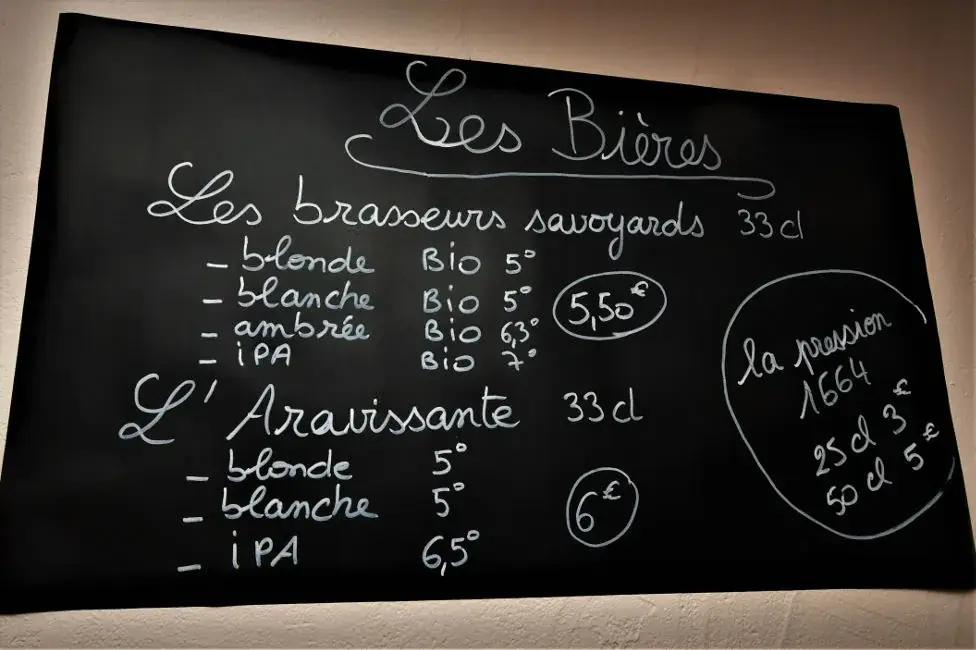 Les Bières
Les brasseurs savoyards 33 cl
- blonde Bio 5°
- blanche Bio 5°
- ambrée Bio 6,3°
- iPA Bio 7°
5,50€
L'Aravissante 33 cl
- blonde 5°
- blanche 5°
- iPA 6,5°
6€
la pression
1664
25 cl 3€
50 cl 5€